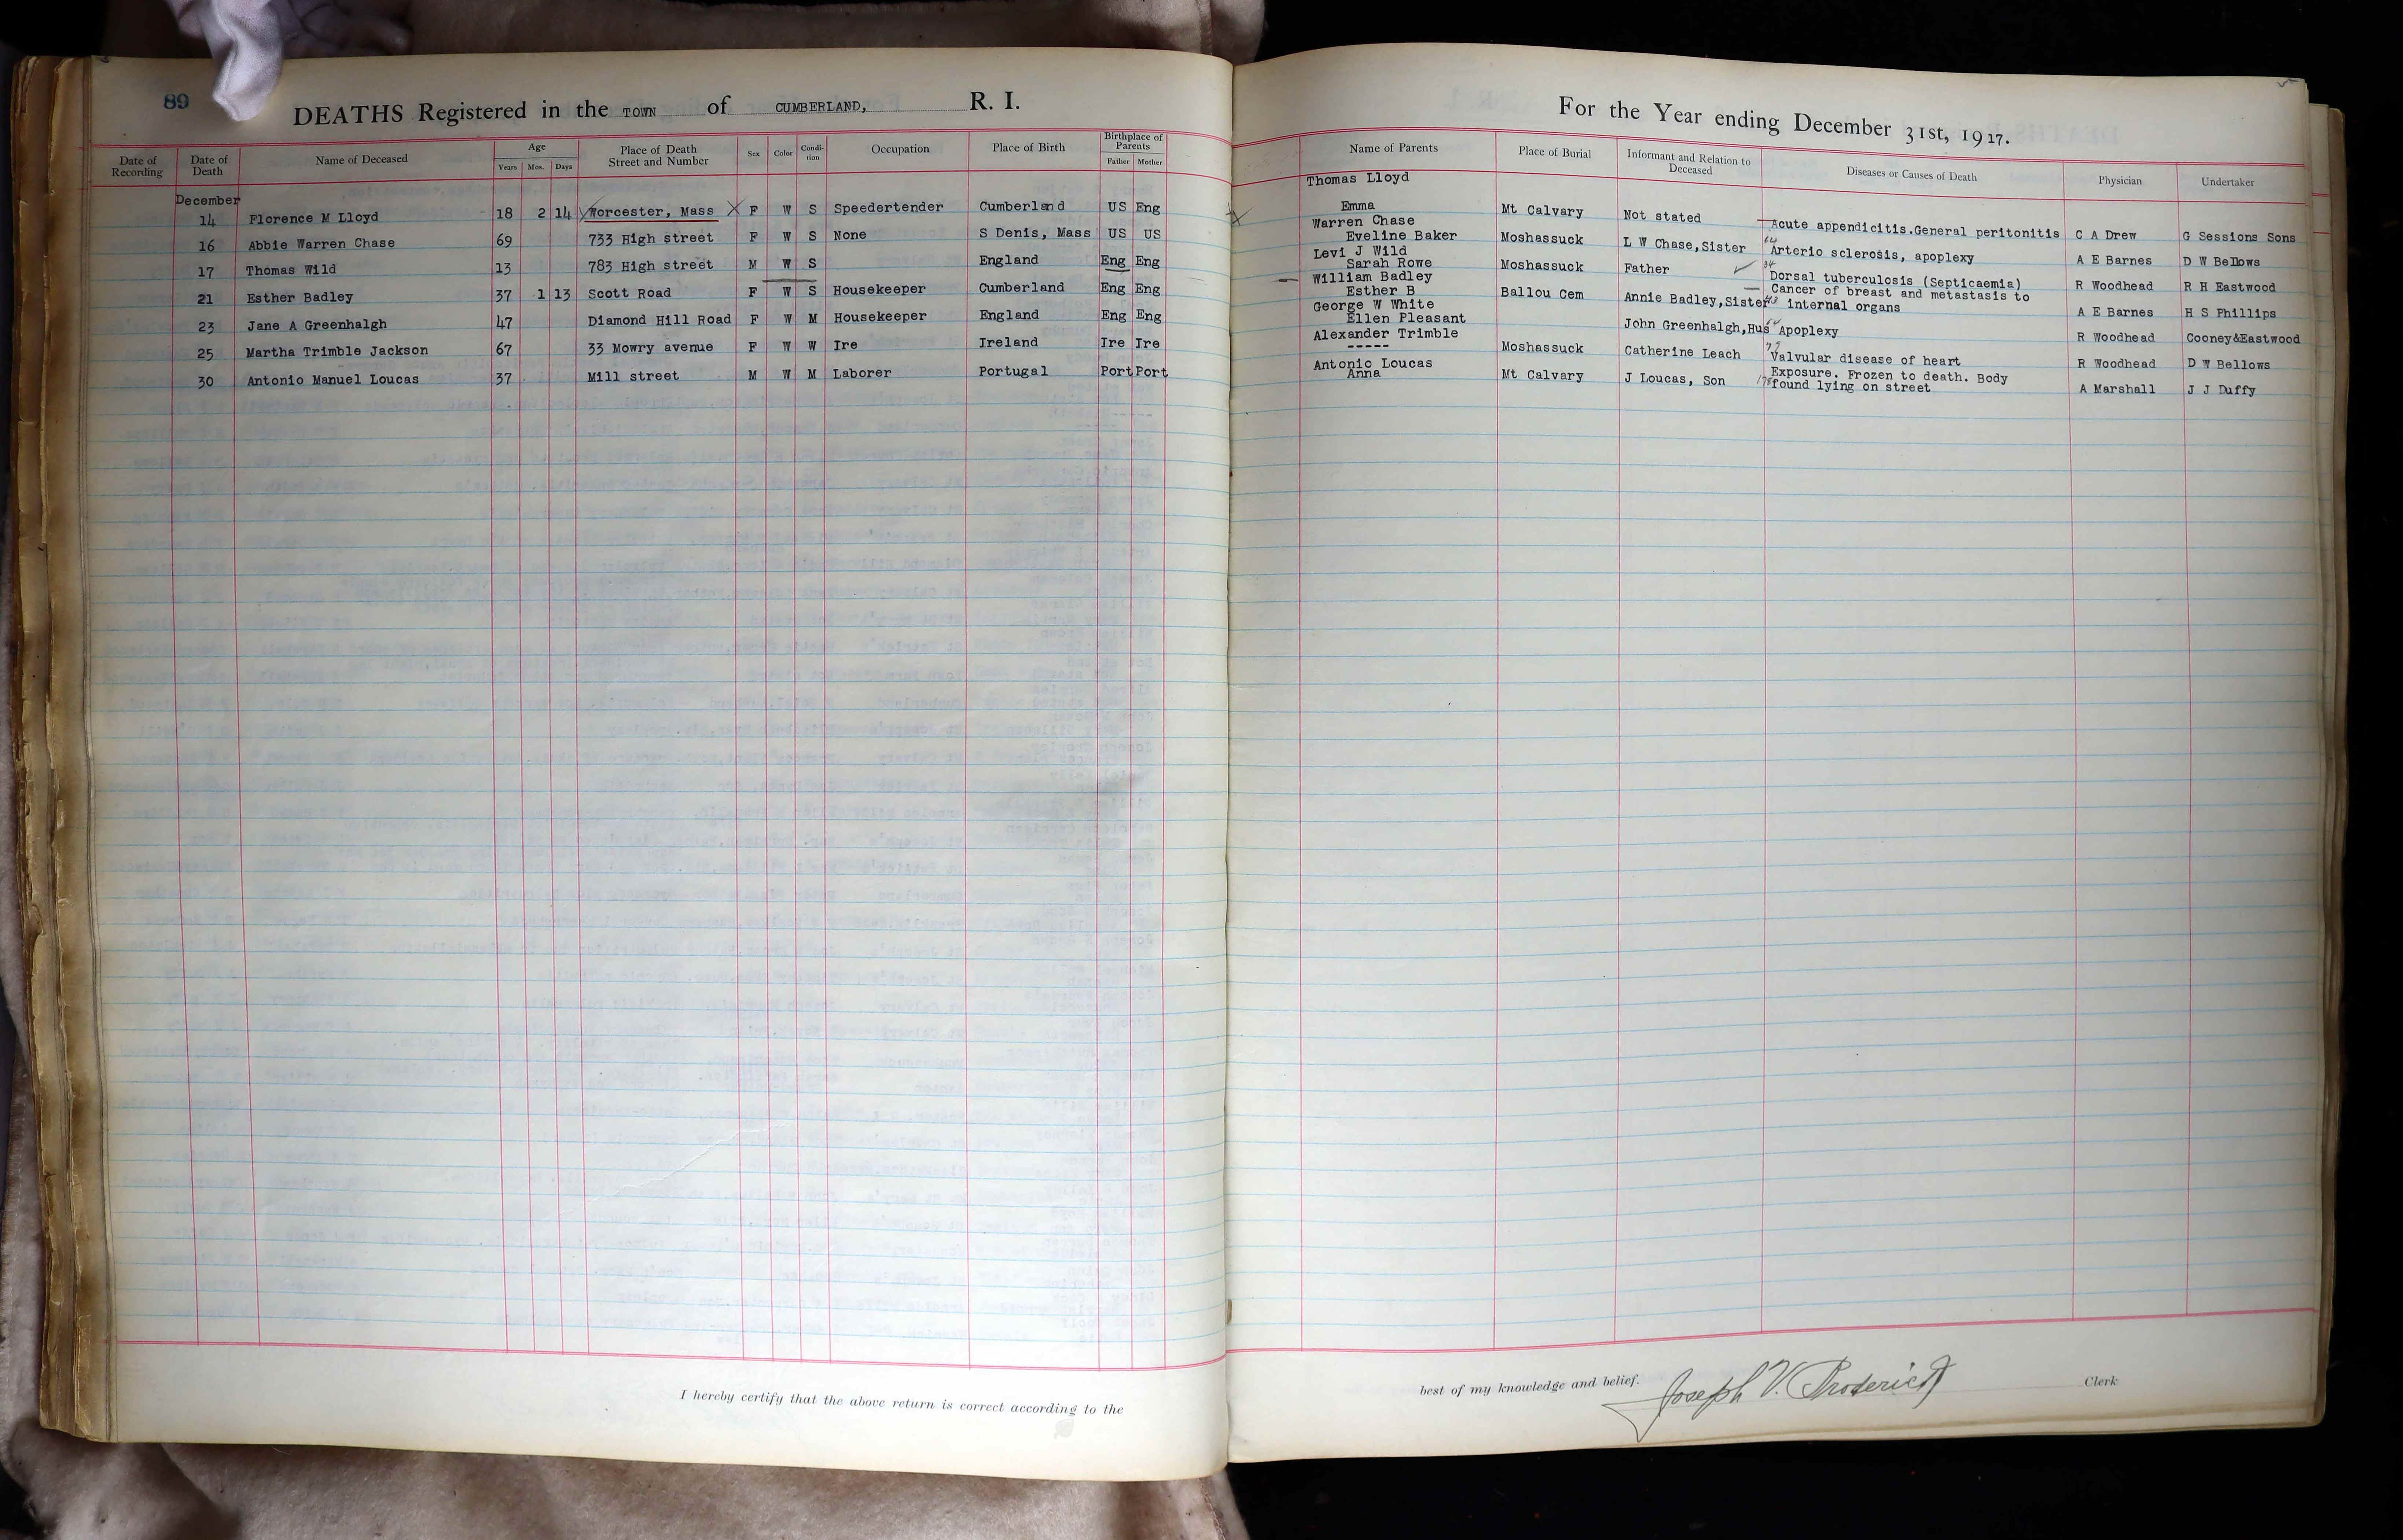 89
DEATHS Registered in the TOWN of CUMBERLAND, R. I.
Date of Recording
Date of Death
Name of Deceased
Age
Years Mos. Days
Place of Death Street and Number
Sex
Color
Condi-tion
Occupation
Place of Birth
Birthplace of Parents
Father Mother
December
14 Florence M Lloyd 18 2 14 Worcester, Mass X F W S Speedertender Cumberland US Eng
16 Abbie Warren Chase 69 733 High street F W S None S Denis, Mass US US
17 Thomas Wild 13 783 High street M W S England Eng Eng
21 Esther Badley 37 1 13 Scott Road F W S Housekeeper Cumberland Eng Eng
23 Jane A Greenhalgh 47 Diamond Hill Road F W M Housekeeper England Eng Eng
25 Martha Trimble Jackson 67 33 Mowry avenue F W W Ire Ireland Ire Ire
30 Antonio Manuel Loucas 37 Mill street M W M Laborer Portugal Port Port
I hereby certify that the above return is correct according to the
For the Year ending December 31st, 1917.
Name of Parents
Place of Burial
Informant and Relation to Deceased
Diseases or Causes of Death
Physician
Undertaker
Thomas Lloyd
Emma Mt Calvary Not stated Acute appendicitis.General peritonitis C A Drew G Sessions Sons
Warren Chase
Eveline Baker Moshassuck L W Chase,Sister 64 Arterio sclerosis, apoplexy A E Barnes D W Bellows
Levi J Wild
Sarah Rowe Moshassuck Father 34 Dorsal tuberculosis (Septicaemia) R Woodhead R H Eastwood
William Badley Cancer of breast and metastasis to
Esther B Ballou Cem Annie Badley,Sister 43 internal organs A E Barnes H S Phillips
George W White
Ellen Pleasant John Greenhalgh,Hus 64 Apoplexy R Woodhead Cooney&Eastwood
Alexander Trimble
----- Moshassuck Catherine Leach 79 Valvular disease of heart R Woodhead D W Bellows
Antonio Loucas Exposure. Frozen to death. Body
Anna Mt Calvary J Loucas, Son 178 found lying on street A Marshall J J Duffy
best of my knowledge and belief. Joseph V. Broderick Clerk